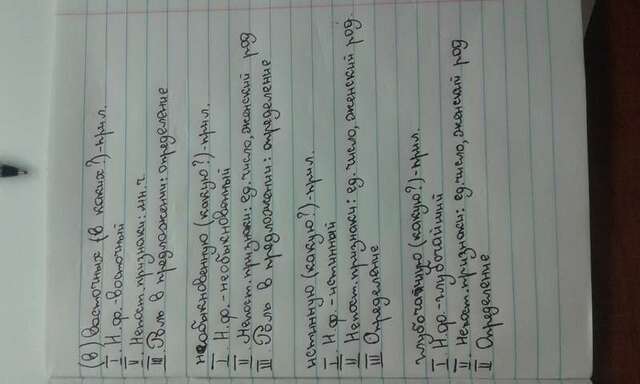 (в) восточных (в каких?)-прил.
I. Н.ф.-восточный
II. Непост.признаки: мн.ч.
III. Роль в предложении: определение
необыкновенную (какую?)-прил.
I. Н.ф.-необыкновенный
II. Непост.признаки: ед.число, женский род
III. Роль в предложении: определение
истинную (какую?)-прил.
I. Н.ф.-истинный
II. Непост.признаки: ед.число, женский род.
III. Определение
глубочайшую (какую?)-прил.
I. Н.ф.-глубочайший
II. Непост.признаки: ед.число, женский род
II. Определение